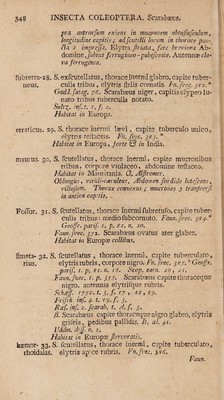 548 INSECTA COLEOPTERA. Scarabæus.
pra antrorsum exiens in mucronem obtusiusculum,
longitudine capitis; ad scutelli locum in thorace pun-
cta 2 impressa. Elytra striata, fere breviora Ab-
domine, subtus ferrugineo-pubescente. Antennæ cla-
va ferruginea.
subterra- 28. S. exscutellatus, thorace inermi glabro, capite tuber-
neus. culis tribus, elytris striis crenatis. Fn. svec. 382.*
Gadd. satag. 76. Scarabæus niger, capitis clypeo lu-
nato tribus tuberculis notato.
Sultz. inf. t. 1. f. 2.
Habitat in Europa.
erraticus. 29. S. thorace inermi lævi, capite tuberculo unico,
elytris testaceis. Fn. svec. 383.*
Habitat in Europa, forte & in India.
maurus. 30. S. scutellatus, thorace inermi, capite mucronibus
tribus, corpore violaceo, abdomine testaceo.
Habitat in Mauritania. O. Alstrœmer.
Oblongus, viridi-cæruleus, Abdomen fordide lutescens,
villosum. Thorax convexus; mucrones 3 transversi
in antico capitis.
Fossor. 31. S. scutellatus, thorace inermi subretuso, capite tuber-
culis tribus: medio subcornuto. Faun. svec. 384.*
Geoffr. paris. 1. p. 82. n. 20.
Faun. svec. 352. Scarabæus ovatus ater glaber.
Habitat in Europæ collibus.
fimeta- 32. S. scutellatus, thorace inermi, capite tuberculato,
rius. elytris rubris, corpore nigro. Fn. svec. 385.* Geoffr.
paris. 1. p. 81. n. 18. Scop. carn. 20, 21.
Faun. svec. 1. p. 355. Scarabæus capite thoraceque
nigro, antennis elytrisque rubris.
Schæff. 1756. t. 3. f. 17, 18, 19.
Frisch. inf. 4. t. 19. f. 3.
Raes. inf. 2. scarab. t. A. f. 3.
β. Scarabæus capite thoraceque nigro glabro, elytris
griseis, pedibus pallidis. It. œl. 41.
Uddm. diss. n. 2.
Habitat in Europæ stercoratis.
hæmor- 33. S. scutellatus, thorace inermi, capite tuberculato,
rhoidalis. elytris apice rubris. Fn. svec. 386.
Faun.